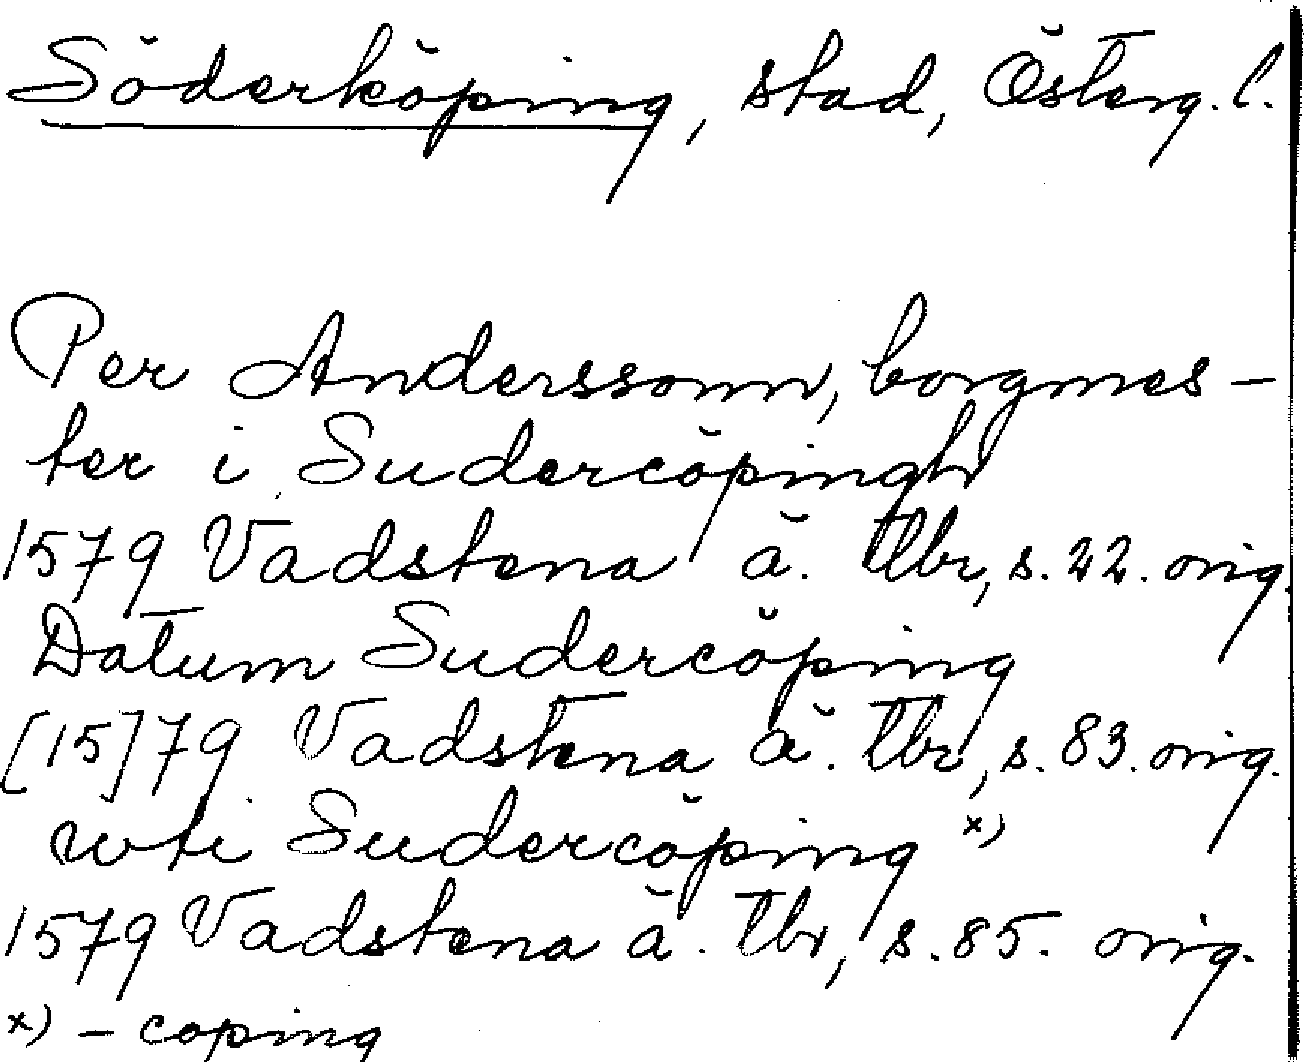 Söderköping, stad, Österg. l.
Per Anderssonn, borgmes-
ter i Sudercöpingh
1579 Vadstena ä. tbr, s. 22. orig.
Datum Sudercöping
[15]79 Vadstena ä. tbr, s. 83. orig.
wti Sudercöping x)
1579 Vadstena ä. tbr, s. 85. orig.
x) - coping